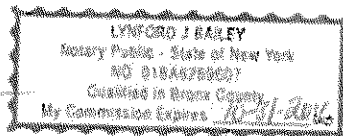 LYNFORD J BAILEY
Notary Public - State of New York
NO
Qualified in Bronx County
My Commission Expires